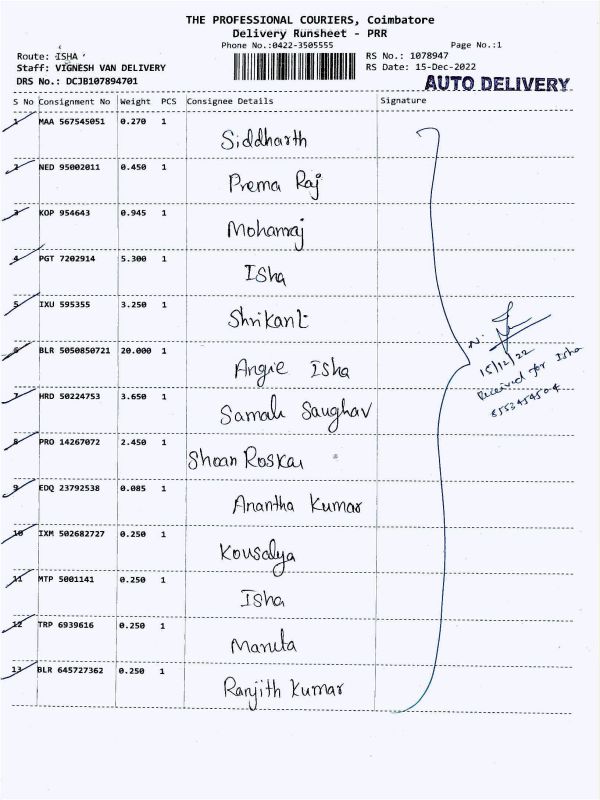 THE PROFESSIONAL COURIERS, Coimbatore
Delivery Runsheet - PRR
Phone No.:0422-3505555 Page No.:1
Route: ISHA
Staff: VIGNESH VAN DELIVERY
DRS No.: DCJB107894701
RS No.: 1078947
RS Date: 15-Dec-2022
AUTO DELIVERY
S No Consignment No Weight PCS Consignee Details Signature
1 MAA 567545051 0.270 1 Siddharth
2 NED 95002011 0.450 1 Prema Raj
3 KOP 954643 0.945 1 Mohanraj
4 PGT 7202914 5.300 1 Isha
5 IXU 595355 3.250 1 Shrikant
6 BLR 5050850721 20.000 1 Angie Isha
7 HRD 50224753 3.650 1 Samak Saughav
8 PRO 14267072 2.450 1 Shoan Roskar
9 EDQ 23792538 0.085 1 Anantha Kumar
10 IXM 502682727 0.250 1 Kousalya
11 MTP 5001141 0.250 1 Isha
12 TRP 6939616 0.250 1
13 BLR 645727362 0.250 1 Ranjith Kumar
15/12/22
Received for Isha